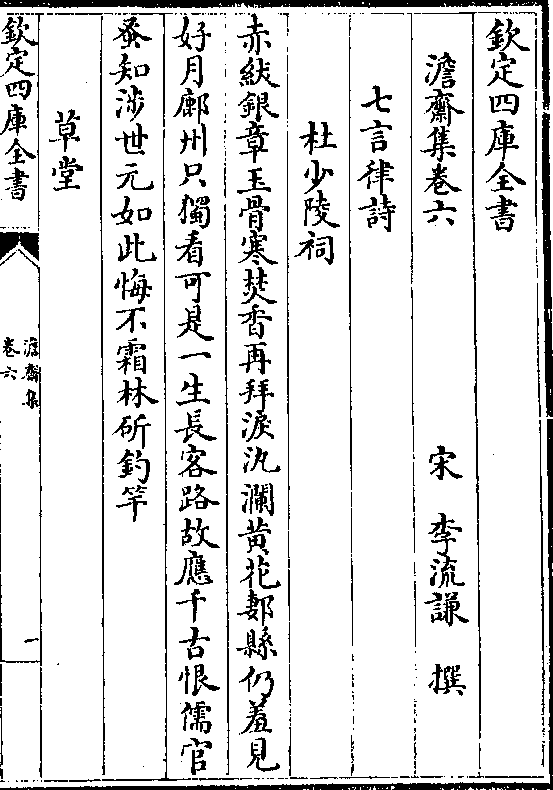 欽定四庫全書
澹齋集卷六
宋 李流謙 撰
七言律詩
杜少陵祠
赤紱銀章玉骨寒焚香再拜淚汍瀾黄花鄠縣仍羞見
好月鄜州只獨看可是一生長客路故應千古恨儒官
蚤知涉世元如此悔不霜林斫釣竿
草堂
欽定四庫全書
澹齋集
卷六
一